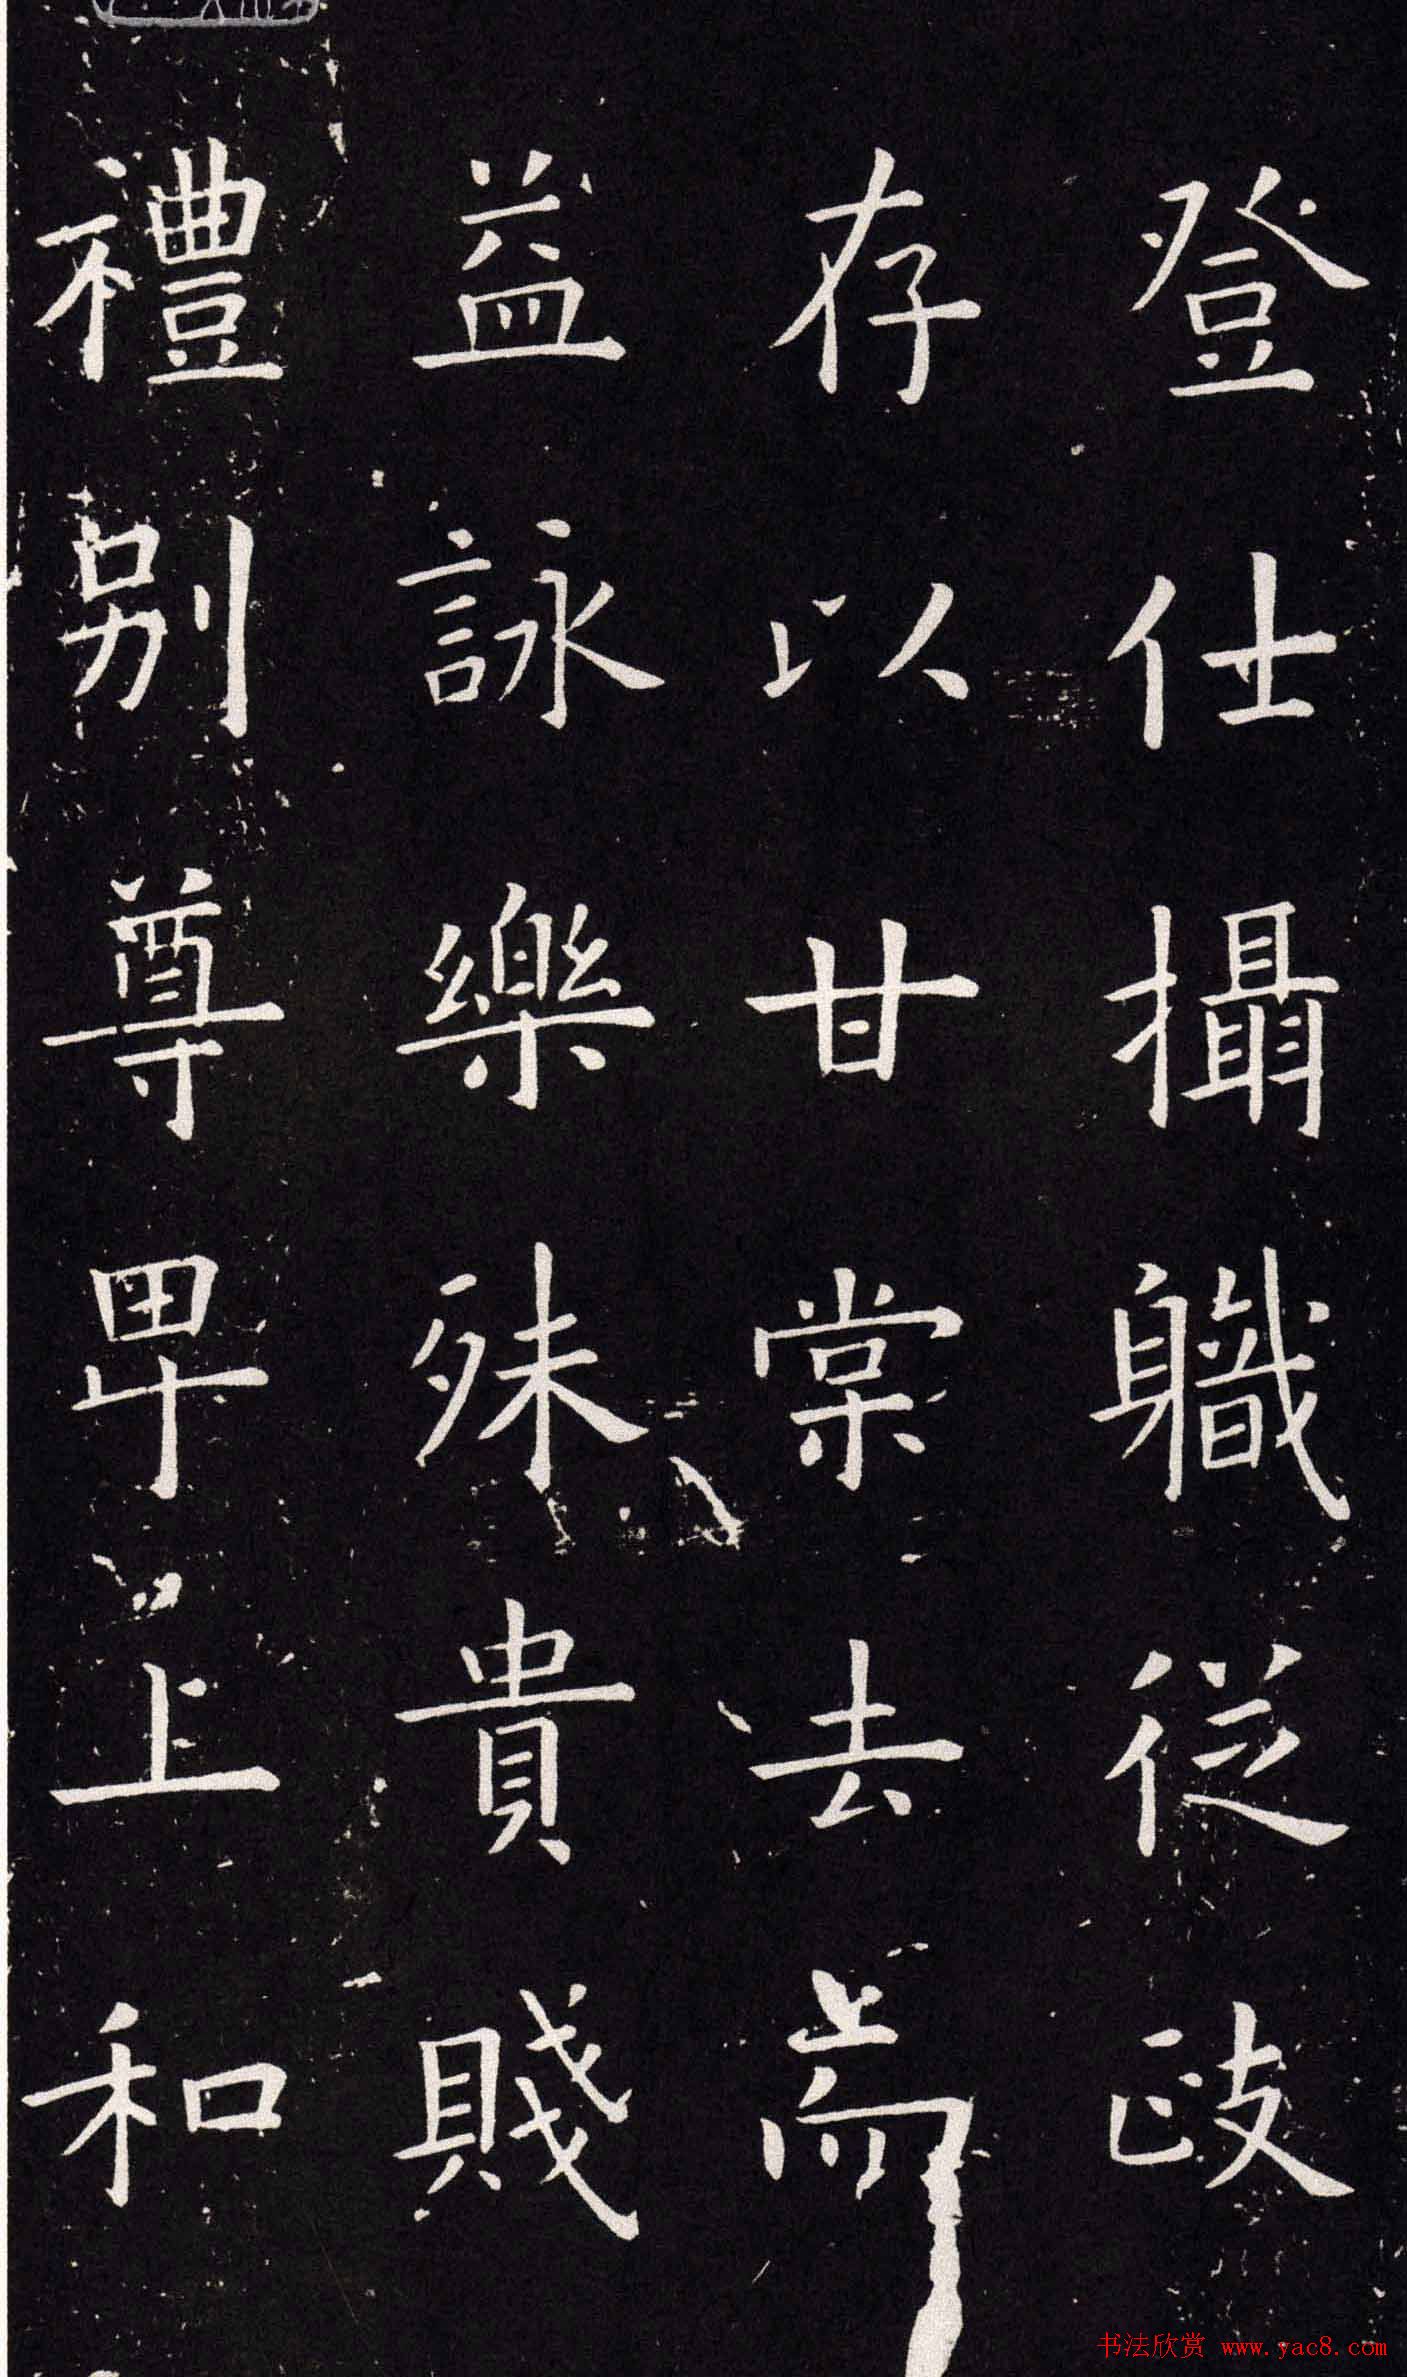 登仕攝職從政
存以甘棠去而
益詠樂殊貴賤
禮別尊卑上和
书法欣赏 www.yac8.com